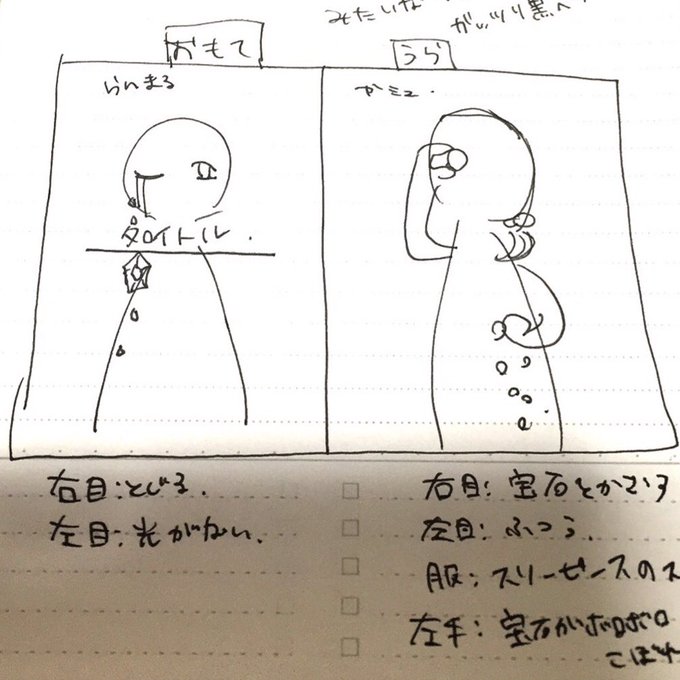 みたいな
ガッツリ黒へ
おもて
うら
らんまる
カミュ.
タイトル.
右目:とじる.
左目:光がない.
右目:宝石とかさいる
左目:ふつう.
服:スリーピースのス
左手:宝石がボロボロ
こぼれ